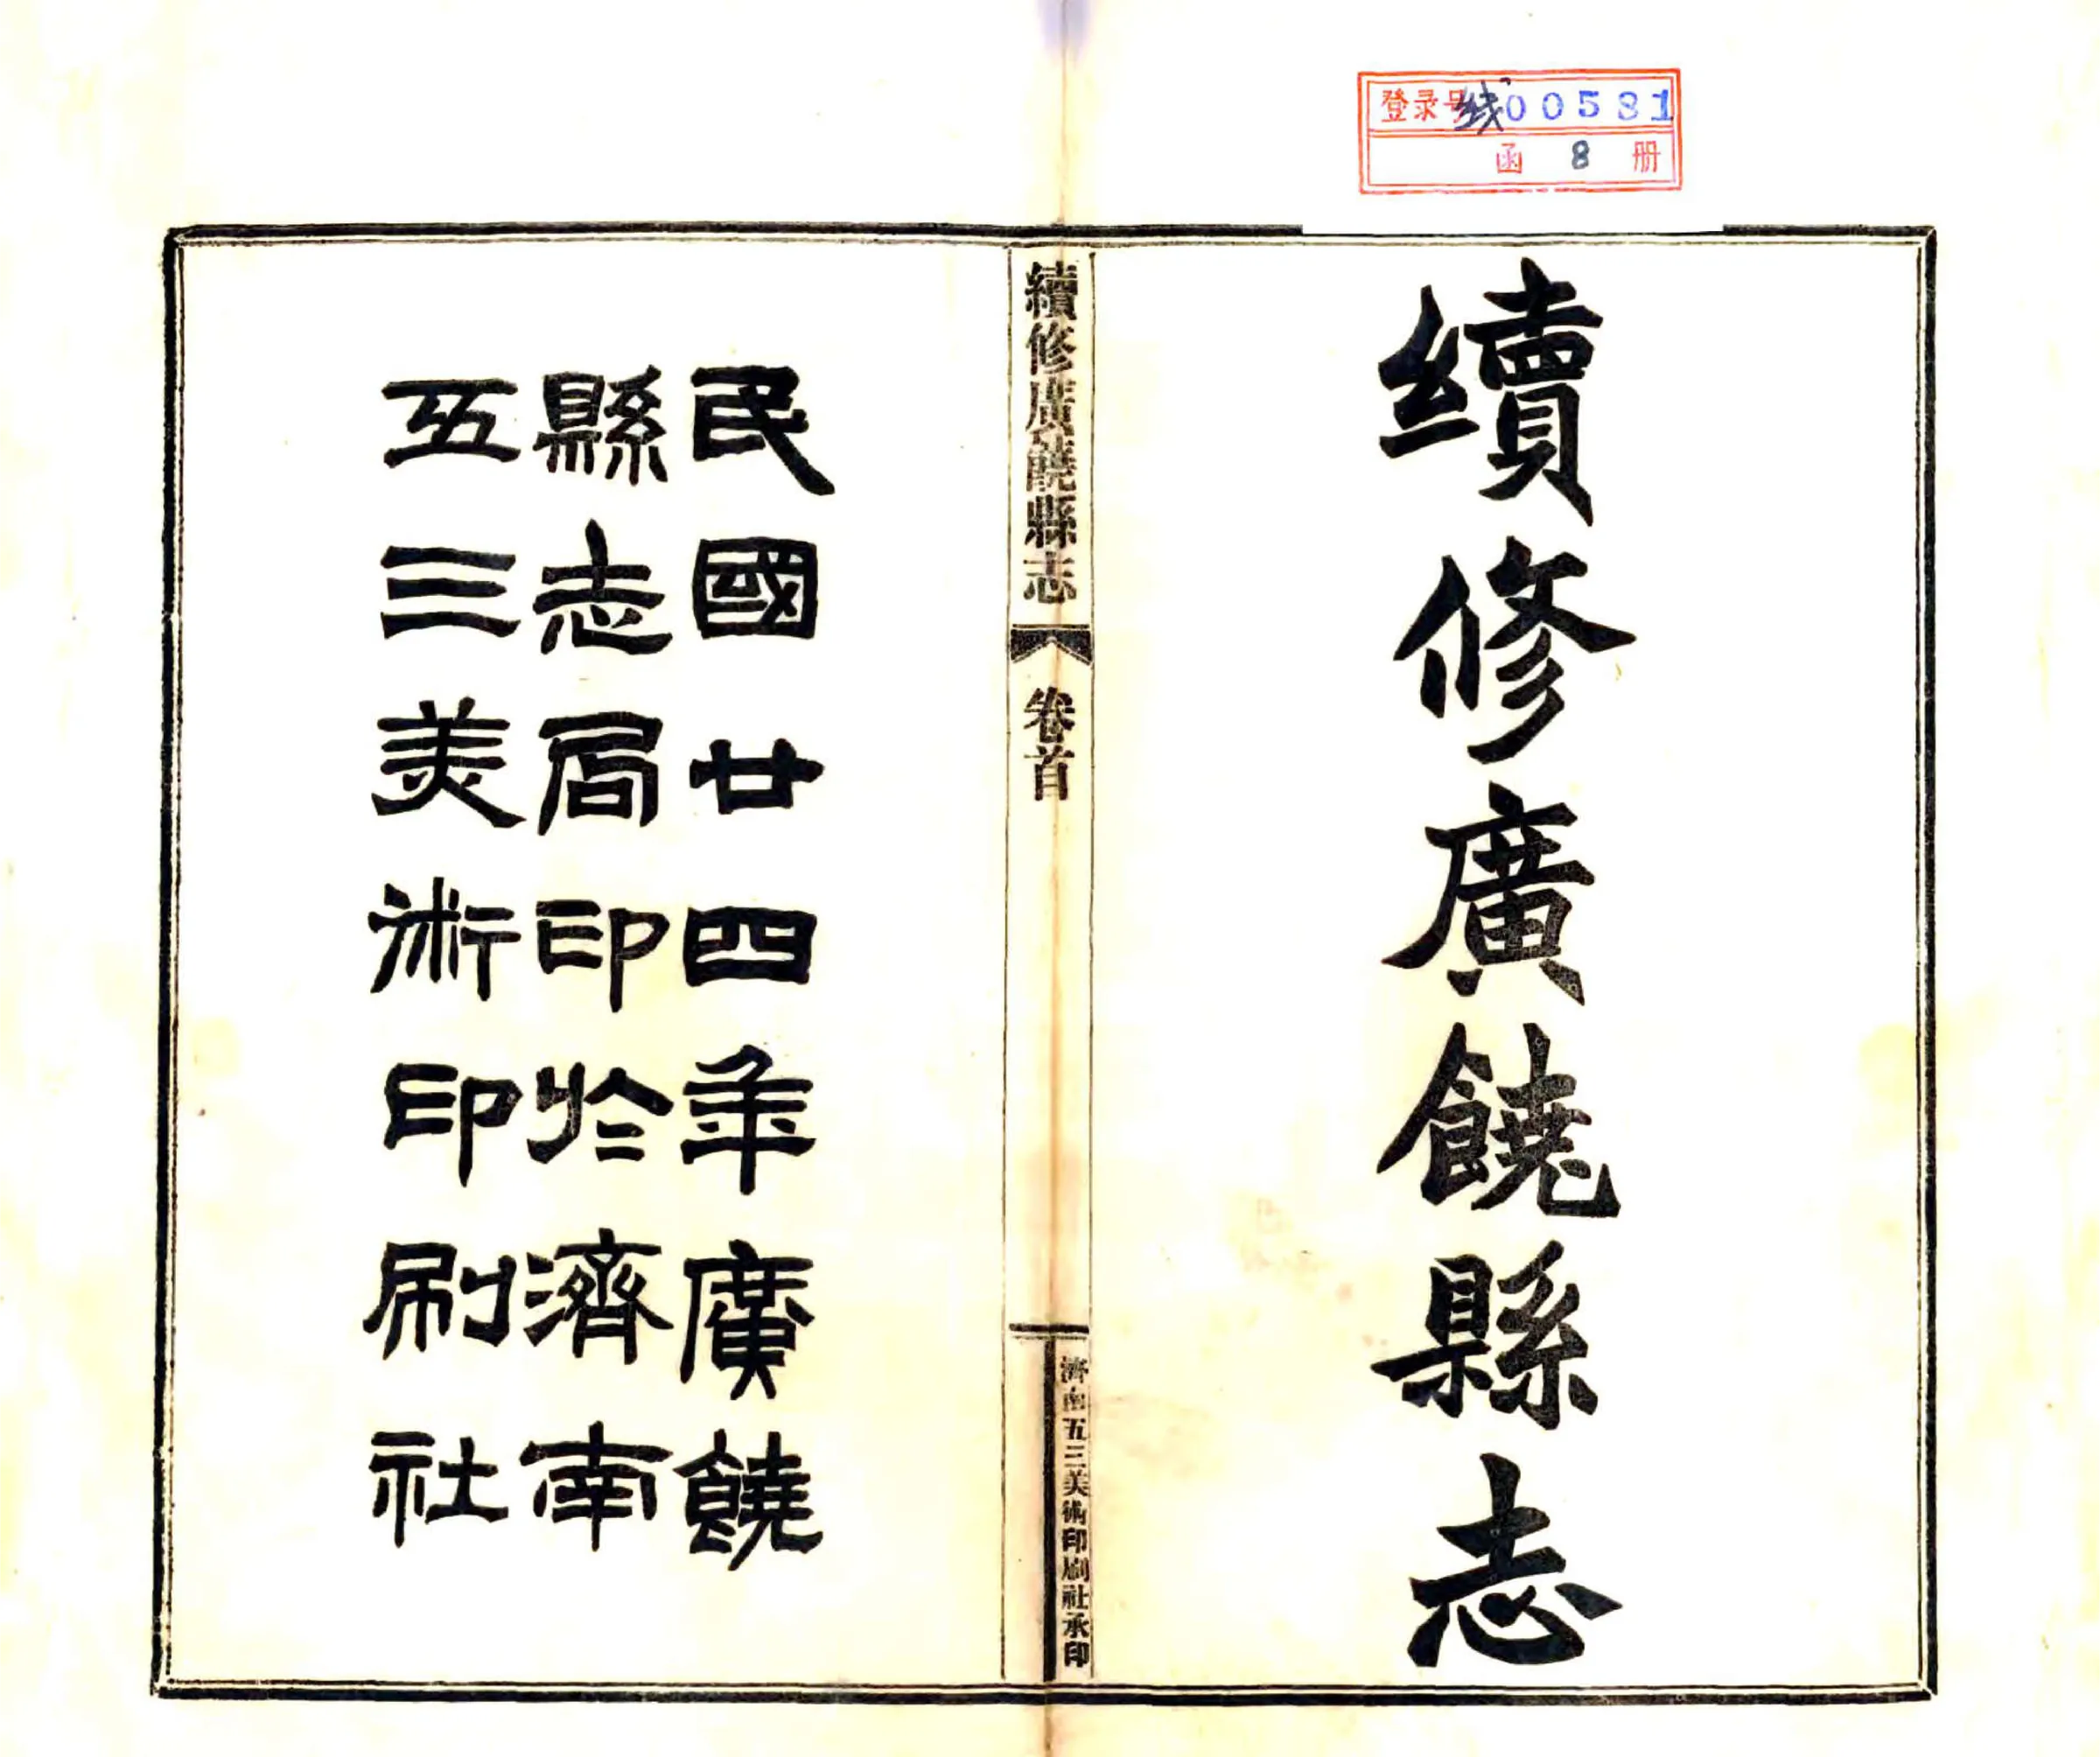 登录号 线00581
函 8 册
續修廣饒縣志
續修廣饒縣志 卷首
濟南五三美術印刷社承印
民國廿四年廣饒
縣志局印於濟南
五三美術印刷社